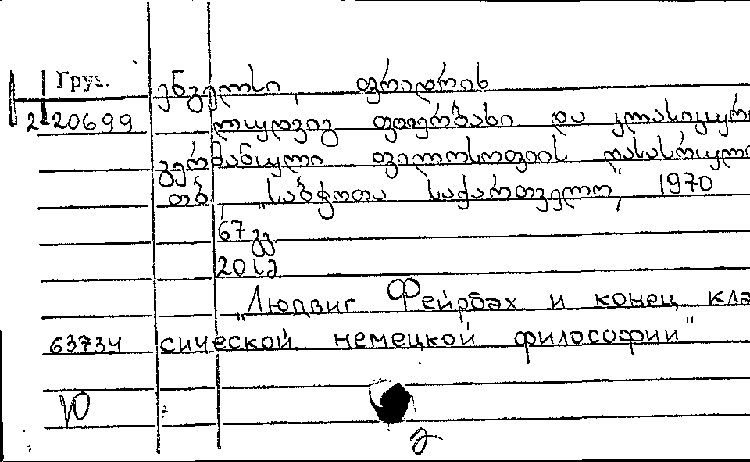 Груз. ენგელსი, ფრიდრიხ
2-20699 ლუდვიგ ფეიერბახი და კლასიკური
გერმანული ფილოსოფიის დასასრული
თბ. „საბჭოთა საქართველო", 1970
67 გვ
20სმ
„Людвиг Фейрбах и конец клас
63734 сической немецкой философии"
Ю